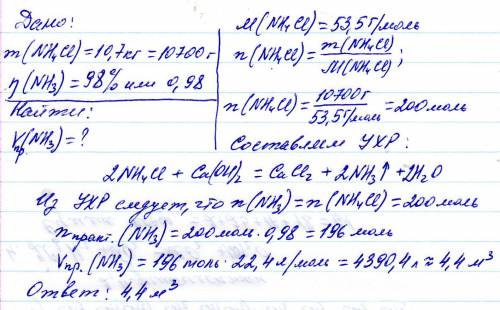 Дано:
m(NH₄Cl)=10,7кг=10700г
η(NH₃)=98% или 0,98
Найти:
Vпр.(NH₃)=?
M(NH₄Cl)=53,5г/моль
n(NH₄Cl)=m(NH₄Cl)/M(NH₄Cl);
n(NH₄Cl)=10700г/53,5г/моль=200моль
Составляем УХР:
2NH₄Cl + Ca(OH)₂ = CaCl₂ + 2NH₃↑ +2H₂O
Из УХР следует, что n(NH₃)=n(NH₄Cl)=200моль
nпракт.(NH₃)=200моль·0,98=196 моль
Vпр.(NH₃)=196 моль·22,4л/моль=4390,4л≈4,4м³
Ответ: 4,4м³